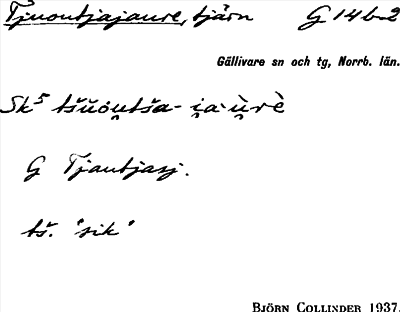 Tjuoutjajaure, tjärn G 14b2
Gällivare sn och tg, Norrb. län.
Sk⁵ tšŭou̯tša- i̯a·u̯rè
G Tjautjasj.
tš. "sik"
BJÖRN COLLINDER 1937.